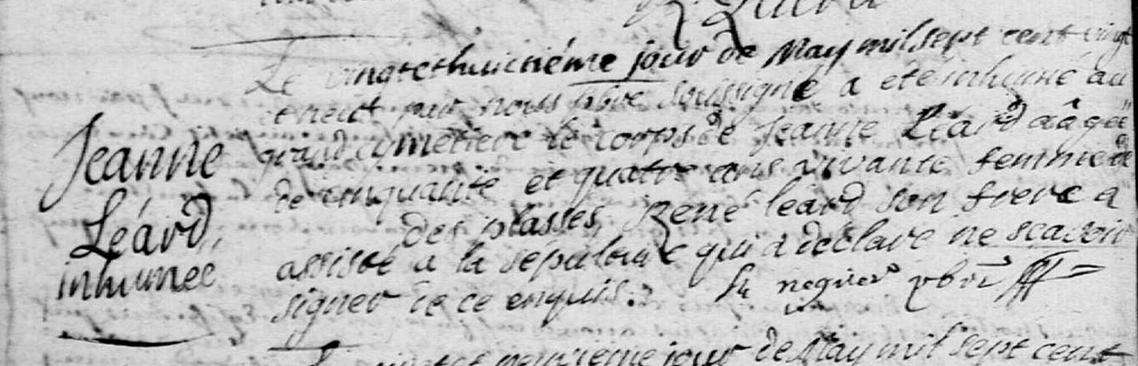 Le vingtethuictiéme jour de May mil sept cent vingt
et neuf par nous pbre soussigné a eté inhumé au
grand cymetiere le corps de Jeanne Léard aâgée
de cinquante et quatre ans vivante femme de
des plasses, René léard son frere a
assisté a la sépulture qui a declaré ne scavoir
signer de ce enquis.
Jeanne
Léard,
inhumée
jour de May mil sept cent